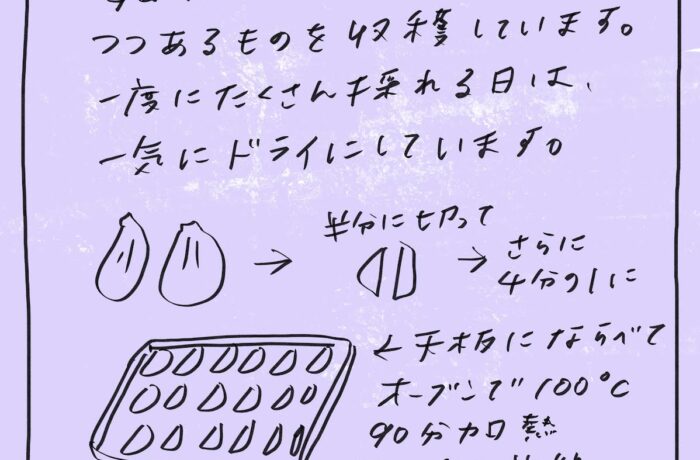 つつあるものを収穫しています。
一度にたくさん採れる日は、
一気にドライにしています。
半分に切って
さらに
4分の1に
←天板にならべて
オーブンで100℃
90分加熱